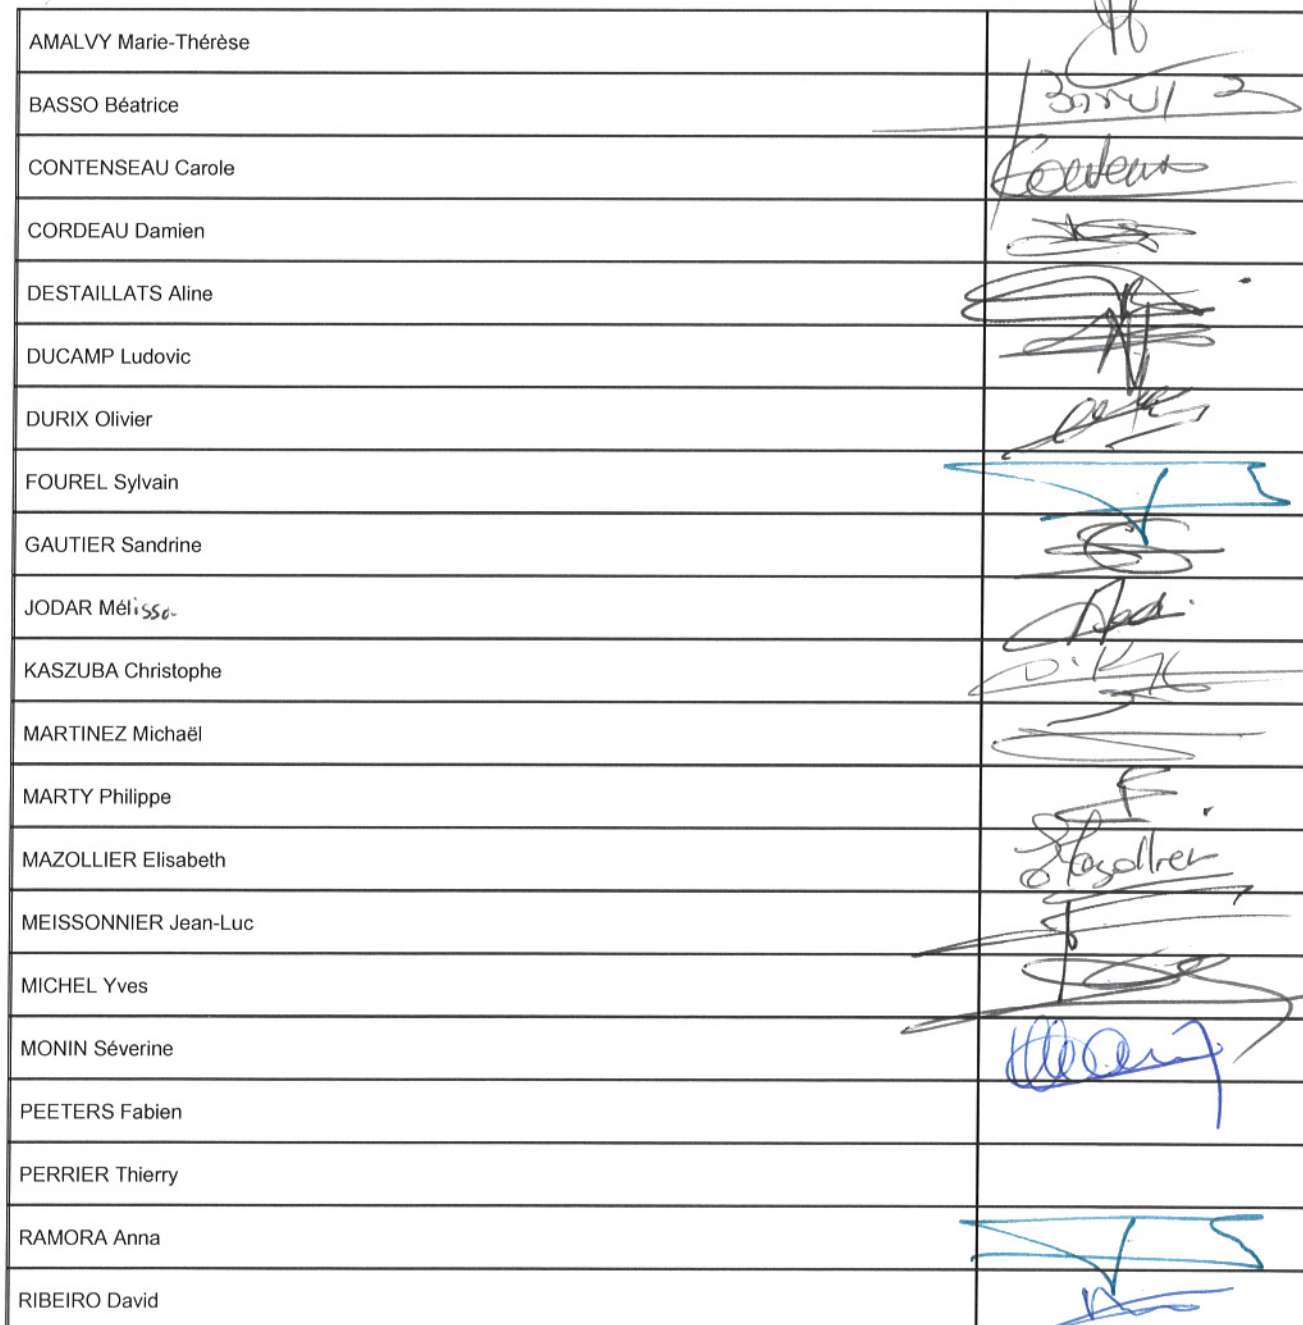 AMALVY Marie-Thérèse
BASSO Béatrice
CONTENSEAU Carole
CORDEAU Damien
DESTAILLATS Aline
DUCAMP Ludovic
DURIX Olivier
FOUREL Sylvain
GAUTIER Sandrine
JODAR Mélissa
KASZUBA Christophe
MARTINEZ Michaël
MARTY Philippe
MAZOLLIER Elisabeth Mazollier
MEISSONNIER Jean-Luc
MICHEL Yves
MONIN Séverine
PEETERS Fabien
PERRIER Thierry
RAMORA Anna
RIBEIRO David